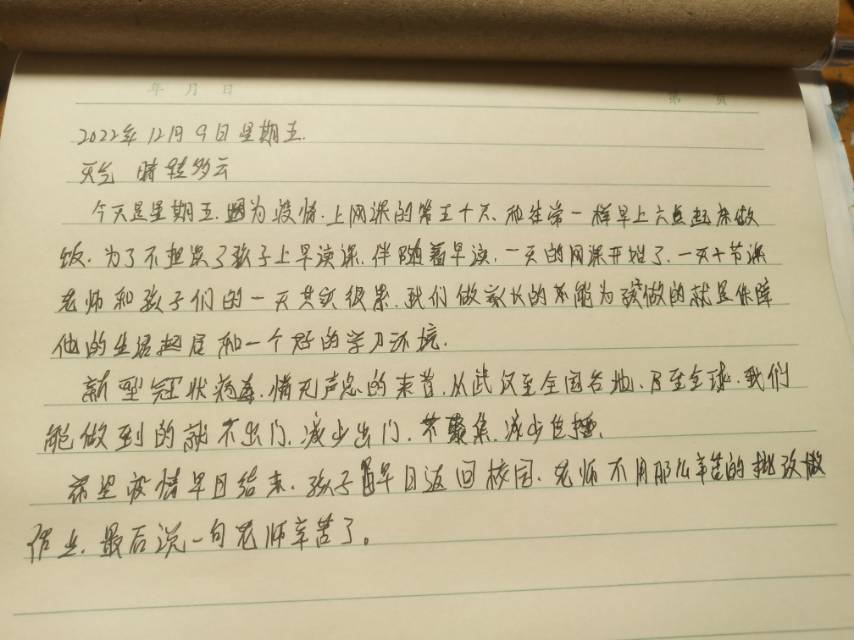 年 月 日
第 页
2022年12月9日星期五.
天气 晴转多云
今天是星期五.因为疫情.上网课的第五十天.和往常一样早上六点起床做
饭.为了不担误了孩子上早读课.伴随着早读.一天的网课开始了.一天十节课
老师和孩子们的一天其实很累.我们做家长的不能为孩做的就是保障
他的生活起居和一个好的学习环境.
新型冠状病毒.悄无声息的来着.从武汉至全国各地.乃至全球.我们
能做到的就不出门.减少出门.不聚集.减少传播.
希望疫情早日结束.孩子早日返回校园.老师不用那么辛苦的批改做
作业.最后说一句老师辛苦了。